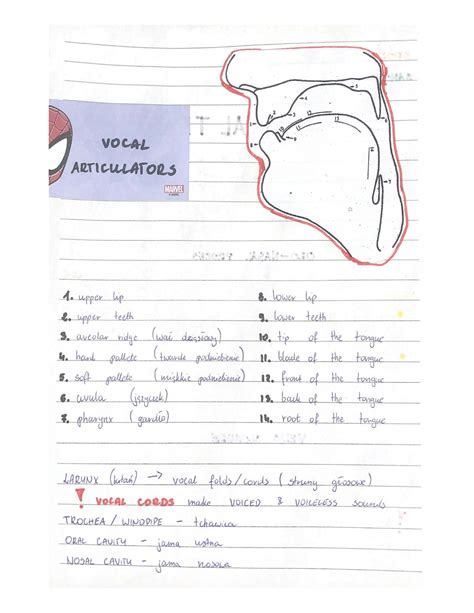 VOCAL
ARTICULATORS
MARVEL
1. upper lip
2. upper teeth
3. avcolar ridge (wał dziąsłowy)
4. hard pallete (twarde podniebienie)
5. soft pallete (miękkie podniebienie)
6. uvula (języczek)
7. pharynx (gardło)
8. lower lip
9. lower teeth
10. tip of the tongue
11. blade of the tongue
12. front of the tongue
13. back of the tongue
14. root of the tongue
LARYNX (krtań) → vocal folds/cords (struny głosowe)
! VOCAL CORDS make VOICED & VOICELESS sounds
TROCHEA / WINDPIPE - tchawica
ORAL CAVITY - jama ustna
NOSAL CAVITY - jama nosowa